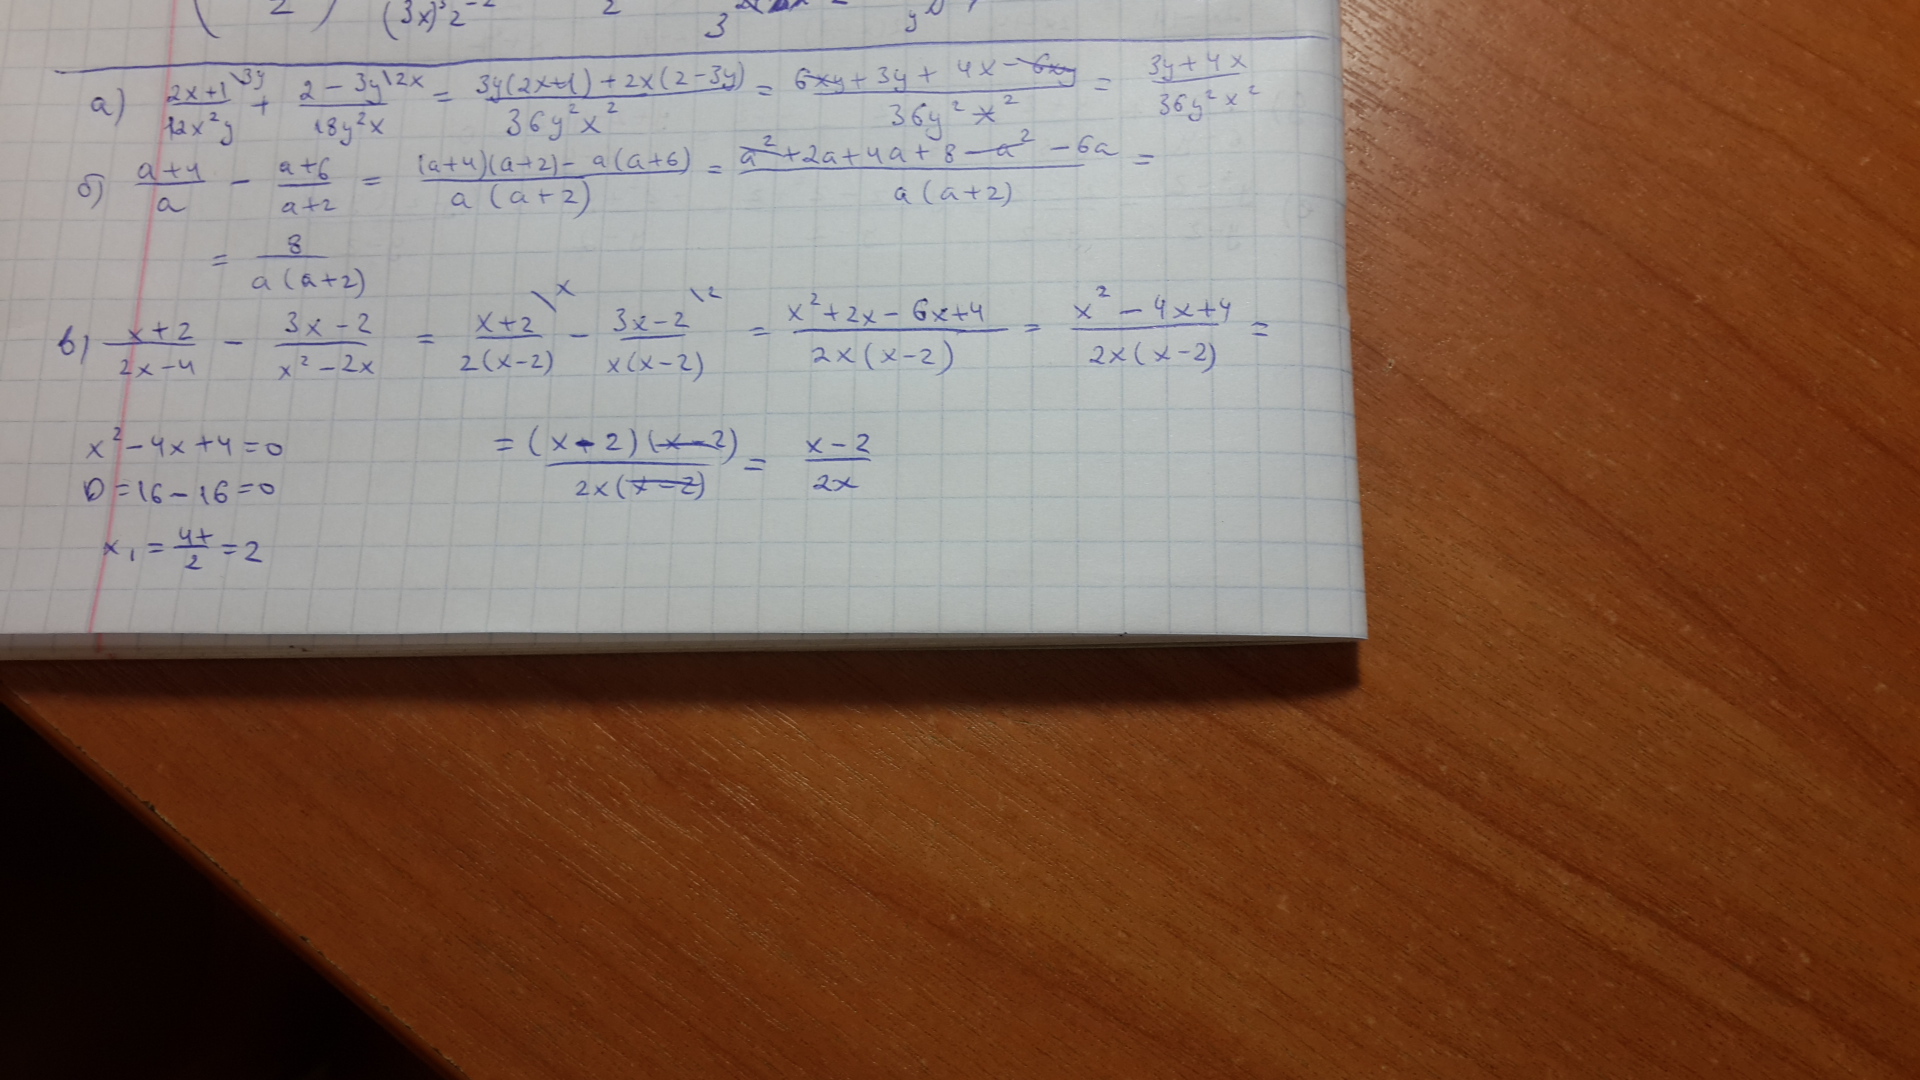 2 (3x)³z⁻² 2 3 y
а) (2x+1)/(12x²y) \3y + (2-3y)/(18y²x) \2x = (3y(2x+1)+2x(2-3y))/(36y²x²) = (6xy+3y+4x-6xy)/(36y²x²) = (3y+4x)/(36y²x²)
б) (a+4)/a - (a+6)/(a+2) = ((a+4)(a+2)-a(a+6))/(a(a+2)) = (a²+2a+4a+8-a²-6a)/(a(a+2)) =
= 8/(a(a+2))
в) (x+2)/(2x-4) - (3x-2)/(x²-2x) = (x+2)/(2(x-2)) \x - (3x-2)/(x(x-2)) \2 = (x²+2x-6x+4)/(2x(x-2)) = (x²-4x+4)/(2x(x-2)) =
x²-4x+4=0 = ((x-2)(x-2))/(2x(x-2)) = (x-2)/(2x)
D=16-16=0
x₁ = (4+)/2 = 2